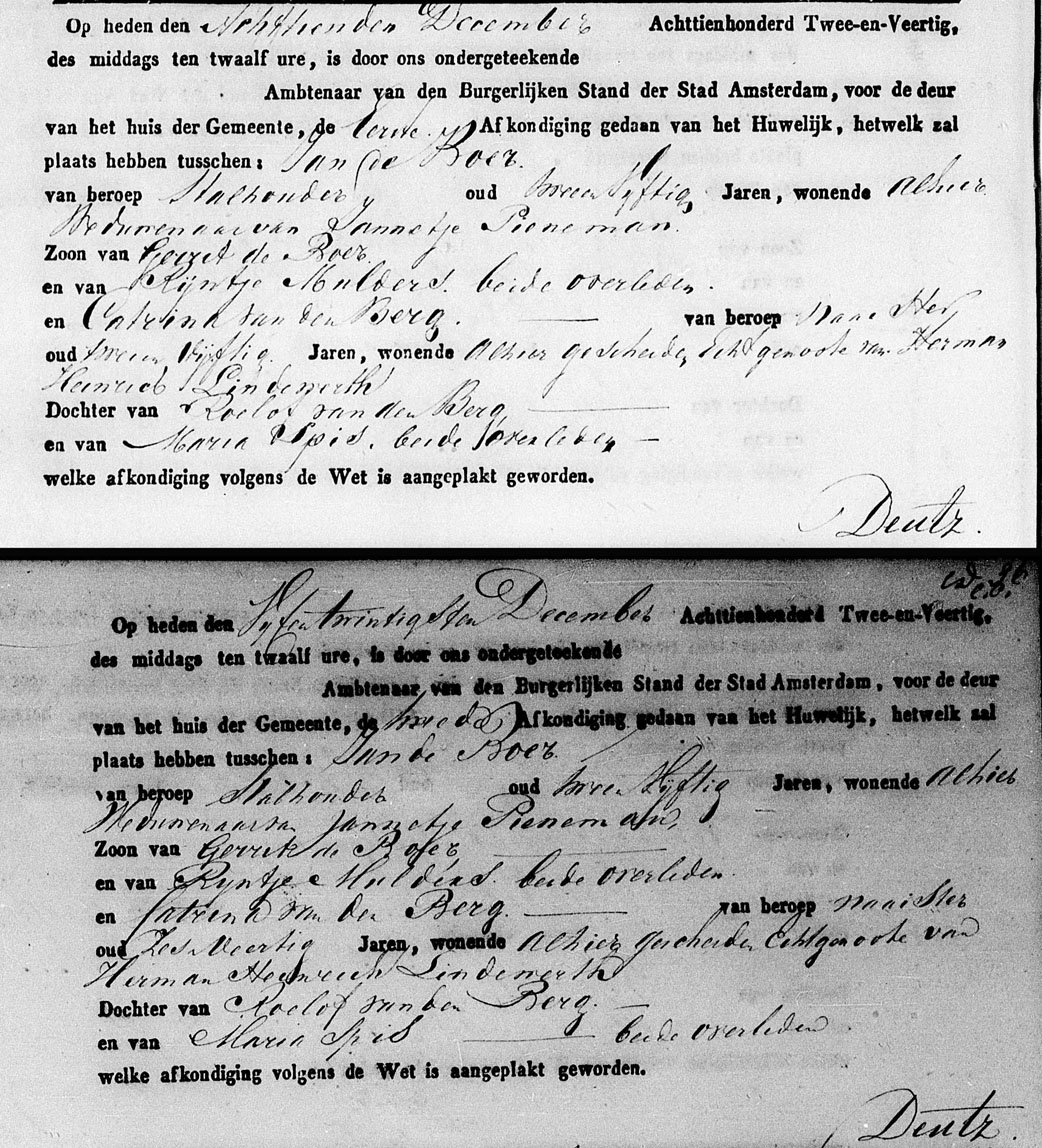 Op heden den Achttienden December Achttienhonderd Twee-en-Veertig,
des middags ten twaalf ure, is door ons ondergeteekende
Ambtenaar van den Burgerlijken Stand der Stad Amsterdam, voor de deur
van het huis der Gemeente, de Eerste Afkondiging gedaan van het Huwelijk, hetwelk zal
plaats hebben tusschen: Jan de Boer.
van beroep Stalhouder oud tweeen Vyftig Jaren, wonende alhier
Weduwenaar van Jannetje Pieneman.
Zoon van Gerrit de Boer.
en van Ryntje Mulders. beide overleden.
en Catrina van den Berg. van beroep Naaister
oud tweeen Vyftig. Jaren, wonende alhier gescheiden Echtgenoote van Herman
Heinrich Lindewerth
Dochter van Roelof van den Berg
en van Maria Spis. beide overleden
welke afkondiging volgens de Wet is aangeplakt geworden.
Deutz.
Op heden den Vyfentwintigsten December Achttienhonderd Twee-en-Veertig,
des middags ten twaalf ure, is door ons ondergeteekende
Ambtenaar van den Burgerlijken Stand der Stad Amsterdam, voor de deur
van het huis der Gemeente, de tweede Afkondiging gedaan van het Huwelijk, hetwelk zal
plaats hebben tusschen: Jan de Boer.
van beroep Stalhouder oud tweeen Vyftig Jaren, wonende alhier
Weduwenaar van Jannetje Pieneman,
Zoon van Gerrit de Boer
en van Ryntje Mulders. beide overleden.
en Catrina van den Berg. van beroep naaister
oud Zes Veertig Jaren, wonende alhier gescheiden Echtgenoote van
Herman Heinrich Lindewerth
Dochter van Roelof van den Berg.
en van Maria Spis beide overleden
welke afkondiging volgens de Wet is aangeplakt geworden.
Deutz.